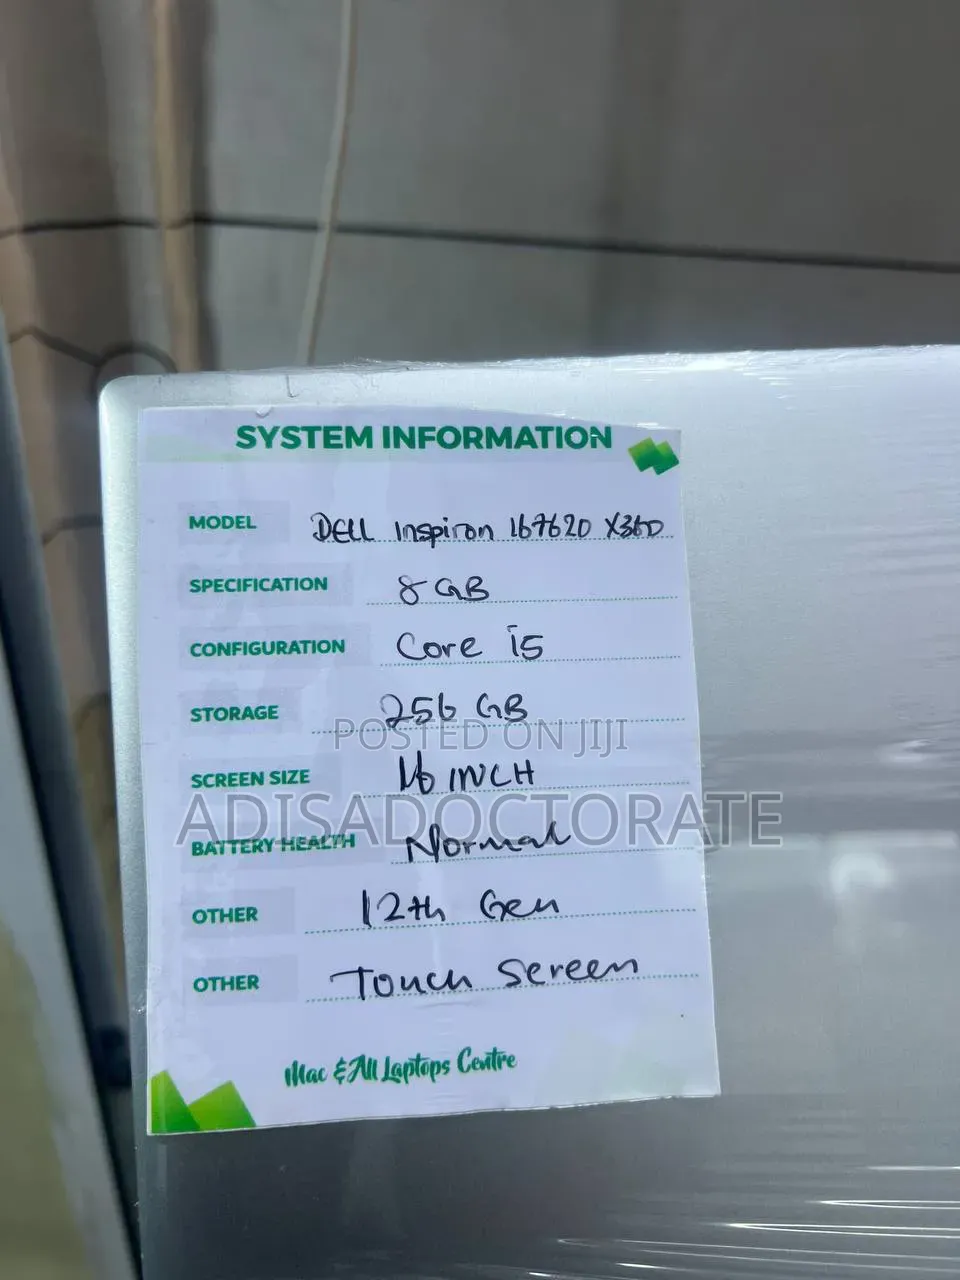 SYSTEM INFORMATION
MODEL DELL Inspiron 167620 X360
SPECIFICATION 8 GB
CONFIGURATION Core i5
STORAGE 256 GB
POSTED ON JIJI
SCREEN SIZE 16 INCH
ADISADOCTORATE
BATTERY HEALTH Normal
OTHER 12th Gen
OTHER Touch Screen
Mac & All Laptops Centre